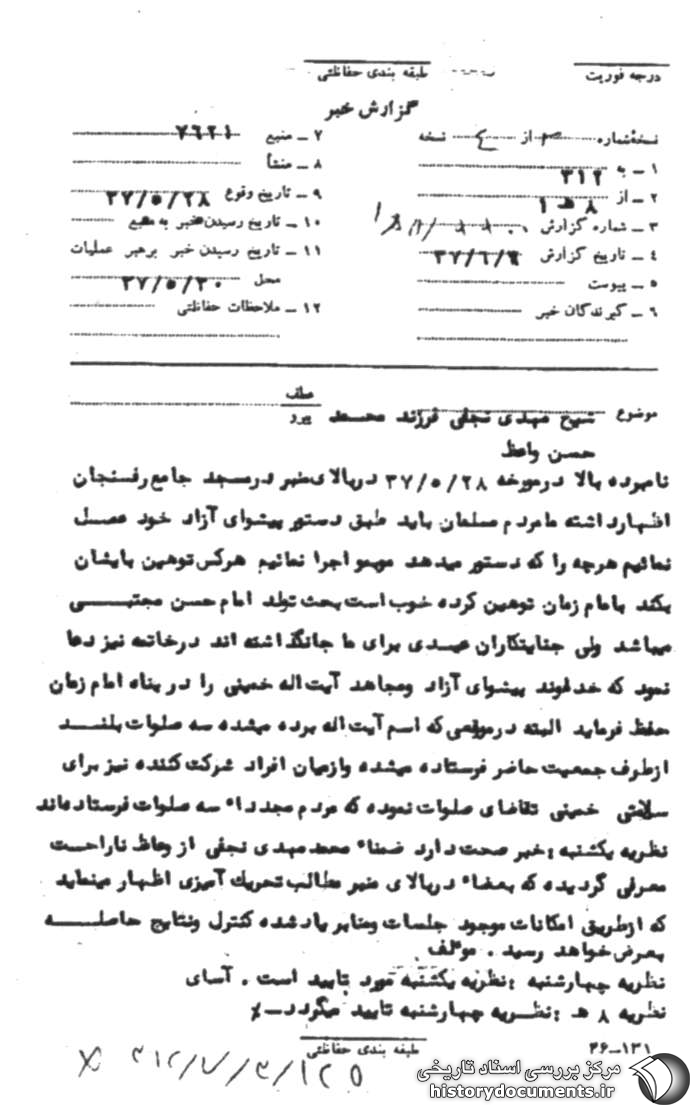 درجه فوریت
طبقه بندی حفاظتی
گزارش خبر
نسخهٔ شماره ۳ از ٤ نسخه
۱ ـ به ۳۱۲
۲ ـ از ۸ هـ ۱
۳ ـ شماره گزارش
٤ ـ تاریخ گزارش ۳۷/٦/۹
۵ ـ پیوست
٦ ـ گیرندگان خبر
۷ ـ منبع ۷٦۲۱
۸ ـ منشأ
۹ ـ تاریخ وقوع ۳۷/۵/۲۸
۱۰ ـ تاریخ رسیدن خبر به منبع
۱۱ ـ تاریخ رسیدن خبر برهبر عملیات
محل ۳۷/۵/۳۰
۱۲ ـ ملاحظات حفاظتی
موضوع شیخ مهدی نجفی فرزند محمد
عطف
پیرو
حسن واعظ
نامبرده بالا درمورخه ۳۷/۵/۲۸ دربالای منبر درمسجد جامع رفسنجان
اظهارداشته ما مردم مسلمان باید طبق دستور پیشوای آزاد خود عمل
نمائیم هرچه را که دستور میدهد موبمو اجرا نمائیم هرکس توهین بایشان
بکند بامام زمان توهین کرده خوب است بحث تولد امام حسن مجتبی
میباشد ولی جنایتکاران عیدی برای ما جانگذاشته اند درخاتمه نیز دعا
نمود که خداوند پیشوای آزاد ومجاهد آیت اله خمینی را در پناه امام زمان
حفظ فرماید البته درموقعی که اسم آیت اله برده میشده سه صلوات بلند
ازطرف جمعیت حاضر فرستاده میشده وازمیان افراد شرکت کننده نیز برای
سلامتی خمینی تقاضای صلوات نموده که مردم مجدداً سه صلوات فرستاده اند
نظریه یکشنبه : خبر صحت دارد ضمناً محمدمهدی نجفی از وعاظ ناراحت
معرفی گردیده که بعضاً دربالای منبر مطالب تحریک آمیزی اظهار مینماید
که ازطریق امکانات موجود جلسات ومنابر یادشده کنترل ونتایج حاصله
بعرض خواهد رسید . موتلف
نظریه چهارشنبه : نظریه یکشنبه مورد تایید است . آسای
نظریه ۸ هـ : نظریه چهارشنبه تایید میگردد ـ٪
طبقه بندی حفاظتی
۱۳۱ـ۲۶
مرکز بررسی اسناد تاریخی
historydocuments.ir